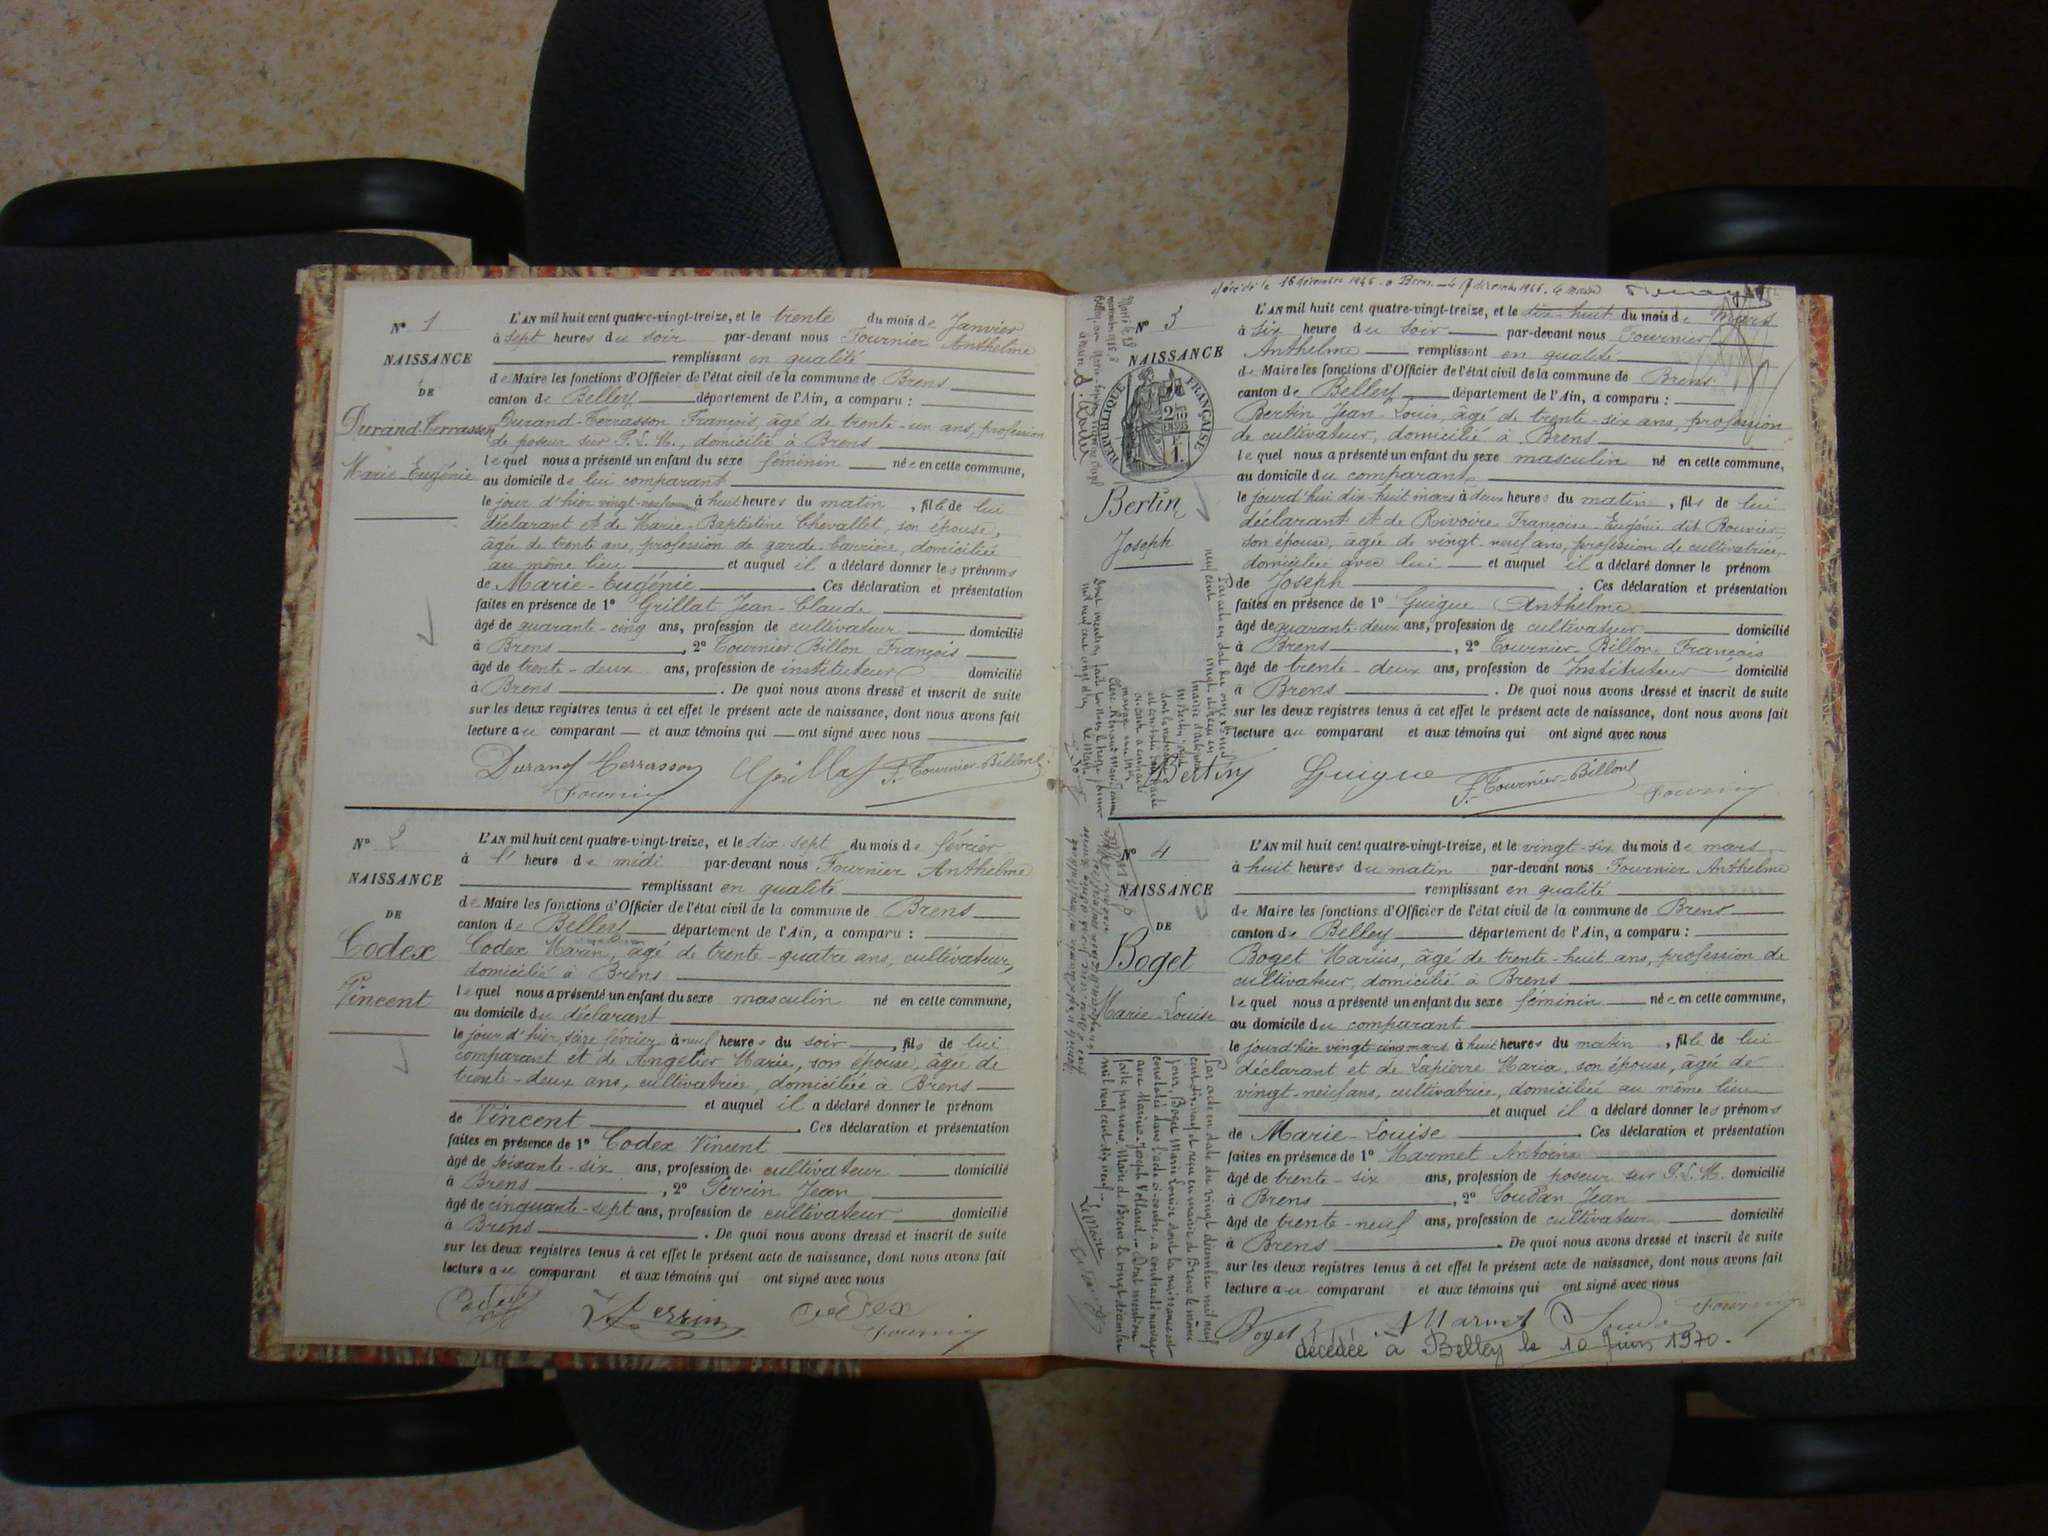 N° 1
NAISSANCE
DE
Durand-Terrasson
Marie-Eugénie
L'AN mil huit cent quatre-vingt-treize, et le trente du mois de Janvier
à sept heures du soir par-devant nous Fournier Anthelme
remplissant en qualité
de Maire les fonctions d'Officier de l'état civil de la commune de Brens
canton de Belley département de l'Ain, a comparu :
Durand-Terrasson François, âgé de trente-un ans, profession
de poseur sur P.L.M., domicilié à Brens
lequel nous a présenté un enfant du sexe féminin née en cette commune,
au domicile de lui comparant
le jour d'hier vingt-neuf à huit heures du matin, fille de lui
déclarant et de Marie-Baptistine Chevallet, son épouse,
âgée de trente ans, profession de garde-barrière, domiciliée
au même lieu et auquel il a déclaré donner les prénoms
de Marie-Eugénie. Ces déclaration et présentation
faites en présence de 1° Grillat Jean-Claude
âgé de quarante-cinq ans, profession de cultivateur domicilié
à Brens, 2° Tournier-Billon François
âgé de trente-deux ans, profession de instituteur domicilié
à Brens. De quoi nous avons dressé et inscrit de suite
sur les deux registres tenus à cet effet le présent acte de naissance, dont nous avons fait
lecture au comparant et aux témoins qui ont signé avec nous
Durand Terrasson Grillat F. Tournier-Billon
Fournier
N° 2
NAISSANCE
DE
Codex
Vincent
L'AN mil huit cent quatre-vingt-treize, et le dix-sept du mois de février
à l' heure de midi par-devant nous Fournier Anthelme
remplissant en qualité
de Maire les fonctions d'Officier de l'état civil de la commune de Brens
canton de Belley département de l'Ain, a comparu :
Codex Marin, âgé de trente-quatre ans, cultivateur,
domicilié à Brens
lequel nous a présenté un enfant du sexe masculin né en cette commune,
au domicile du déclarant
le jour d'hier seize février à neuf heures du soir, fils de lui
comparant et de Angelier Marie, son épouse, âgée de
trente-deux ans, cultivatrice, domiciliée à Brens
et auquel il a déclaré donner le prénom
de Vincent. Ces déclaration et présentation
faites en présence de 1° Codex Vincent
âgé de soixante-six ans, profession de cultivateur domicilié
à Brens, 2° Perrin Jean
âgé de cinquante-sept ans, profession de cultivateur domicilié
à Brens. De quoi nous avons dressé et inscrit de suite
sur les deux registres tenus à cet effet le présent acte de naissance, dont nous avons fait
lecture au comparant et aux témoins qui ont signé avec nous
Perrin Codex
Fournier
décédé le 16 décembre 1966 à Brens le 17 décembre 1966. Le Maire
N° 3
NAISSANCE
DE
RÉPUBLIQUE FRANÇAISE
Bertin
Joseph
L'AN mil huit cent quatre-vingt-treize, et le dix-huit du mois de Mars
à six heure du soir par-devant nous Fournier
Anthelme remplissant en qualité
de Maire les fonctions d'Officier de l'état civil de la commune de Brens
canton de Belley département de l'Ain, a comparu :
Bertin Jean-Louis, âgé de trente-six ans, profession
de cultivateur, domicilié à Brens
lequel nous a présenté un enfant du sexe masculin né en cette commune,
au domicile du comparant
le jourd'hui dix-huit mars à deux heures du matin, fils de lui
déclarant et de Rivoire Françoise-Eugénie dit Bouvier
son épouse, âgée de vingt-neuf ans, profession de cultivatrice,
domiciliée avec lui et auquel il a déclaré donner le prénom
de Joseph. Ces déclaration et présentation
faites en présence de 1° Guigue Anthelme
âgé de quarante-deux ans, profession de cultivateur domicilié
à Brens, 2° Tournier-Billon François
âgé de trente-deux ans, profession de Instituteur domicilié
à Brens. De quoi nous avons dressé et inscrit de suite
sur les deux registres tenus à cet effet le présent acte de naissance, dont nous avons fait
lecture au comparant et aux témoins qui ont signé avec nous
Bertin Guigue F. Tournier-Billon Fournier
N° 4
NAISSANCE
DE
Boget
Marie-Louise
L'AN mil huit cent quatre-vingt-treize, et le vingt-six du mois de mars
à huit heures du matin par-devant nous Fournier Anthelme
remplissant en qualité
de Maire les fonctions d'Officier de l'état civil de la commune de Brens
canton de Belley département de l'Ain, a comparu :
Boget Marius, âgé de trente-huit ans, profession de
cultivateur, domicilié à Brens
lequel nous a présenté un enfant du sexe féminin née en cette commune,
au domicile du comparant
le jourd'hier vingt-cinq mars à huit heures du matin, fille de lui
déclarant et de Lapierre Maria, son épouse, âgée de
vingt-neuf ans, cultivatrice, domiciliée au même lieu
et auquel il a déclaré donner les prénoms
de Marie-Louise. Ces déclaration et présentation
faites en présence de 1° Marmet Antoine
âgé de trente-six ans, profession de poseur sur P.L.M. domicilié
à Brens, 2° Soudan Jean
âgé de trente-neuf ans, profession de cultivateur domicilié
à Brens. De quoi nous avons dressé et inscrit de suite
sur les deux registres tenus à cet effet le présent acte de naissance, dont nous avons fait
lecture au comparant et aux témoins qui ont signé avec nous
Boget Fournier
décédée à Belley le 10 Juin 1970.
Par acte en date du vingt décembre mil neuf
cent dix neuf et reçu en mairie de Brens le même
jour, Boget Marie Louise dont la naissance est
constatée dans l'acte ci-contre, a contracté mariage
avec Marius-Joseph Volland. Dont mention
faite par nous, Maire de Brens le vingt décembre
mil neuf cent dix neuf.
Le Maire